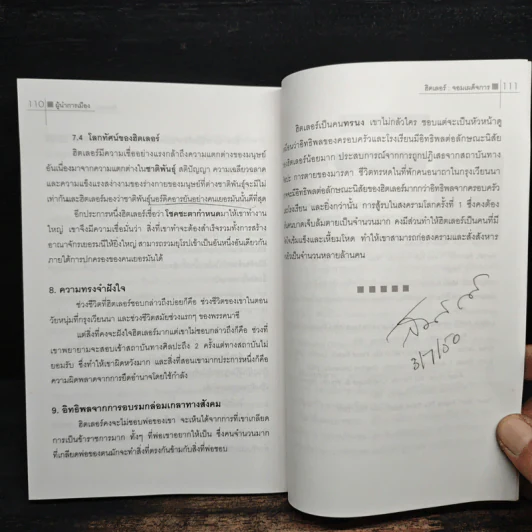 110 ■ ผู้นำการเมือง
7.4 โลกทัศน์ของฮิตเลอร์
ฮิตเลอร์มีความเชื่ออย่างแรงกล้าถึงความแตกต่างของมนุษย์
อันเนื่องมาจากความแตกต่างในชาติพันธุ์ สติปัญญา ความเฉลียวฉลาด
และความแข็งแรงสง่างามของร่างกายของมนุษย์ที่ต่างชาติพันธุ์จะมีไม่
เท่ากันและฮิตเลอร์มองว่าชาติพันธุ์บริสุทธิ์คืออารยันอย่างคนเยอรมันนั้นดีที่สุด
อีกประการหนึ่งฮิตเลอร์เชื่อว่า โชคชะตากำหนดมาให้เขาทำงาน
ใหญ่ เขาจึงมีความเชื่อมั่นว่า สิ่งที่เขาทำจะต้องสำเร็จรวมทั้งการสร้าง
อาณาจักรเยอรมนีให้ยิ่งใหญ่ สามารถรวมยุโรปเข้าเป็นอันหนึ่งอันเดียวกัน
ภายใต้การปกครองของคนเยอรมันได้
8. ความทรงจำฝังใจ
ช่วงชีวิตที่ฮิตเลอร์ชอบกล่าวถึงบ่อยก็คือ ช่วงชีวิตของเขาในตอน
วัยหนุ่มที่กรุงเวียนนา และช่วงชีวิตสมัยช่วงแรกๆ ของพรรคนาซี
แต่สิ่งที่คงจะฝังใจฮิตเลอร์มากแต่เขาไม่ชอบกล่าวถึงก็คือ ช่วงที่
เขาพยายามจะสอบเข้าสถาบันทางศิลปะถึง 2 ครั้งแต่ทางสถาบันไม่
ยอมรับ ซึ่งทำให้เขาผิดหวังมาก และสิ่งที่สอนเขามาประการหนึ่งก็คือ
ความผิดพลาดจากการยึดอำนาจโดยใช้กำลัง
9. อิทธิพลจากการอบรมกล่อมเกลาทางสังคม
ฮิตเลอร์คงจะไม่ชอบพ่อของเขา จะเห็นได้จากการที่เขาเกลียด
การเป็นข้าราชการมาก ทั้งๆ ที่พ่อเขาอยากให้เป็น ซึ่งคนจำนวนมาก
ที่เกลียดพ่อของตนมักจะทำสิ่งที่ตรงกันข้ามกับสิ่งที่พ่อชอบ
ฮิตเลอร์ : จอมเผด็จการ ■ 111
ฮิตเลอร์เป็นคนทรนง เขาไม่กลัวใคร ชอบแต่จะเป็นหัวหน้าดู
เหมือนว่าอิทธิพลของครอบครัวและโรงเรียนมีอิทธิพลต่อลักษณะนิสัย
ของฮิตเลอร์น้อยมาก ประสบการณ์จากการถูกปฏิเสธจากสถาบันทาง
ศิลปะ การตายของมารดา ชีวิตทรหดในที่พักคนอนาถาในกรุงเวียนนา
คงจะมีอิทธิพลต่อลักษณะนิสัยของฮิตเลอร์มากกว่าอิทธิพลจากครอบครัว
และโรงเรียน และยิ่งกว่านั้น การสู้รบในสงครามโลกครั้งที่ 1 ซึ่งคงต้อง
บาดเจ็บล้มตายเป็นจำนวนมาก คงมีส่วนทำให้ฮิตเลอร์เป็นคนที่มี
เข้มแข็งและเหี้ยมโหด ทำให้เขาสามารถก่อสงครามและสั่งสังหาร
เป็นจำนวนหลายล้านคน
3/7/50